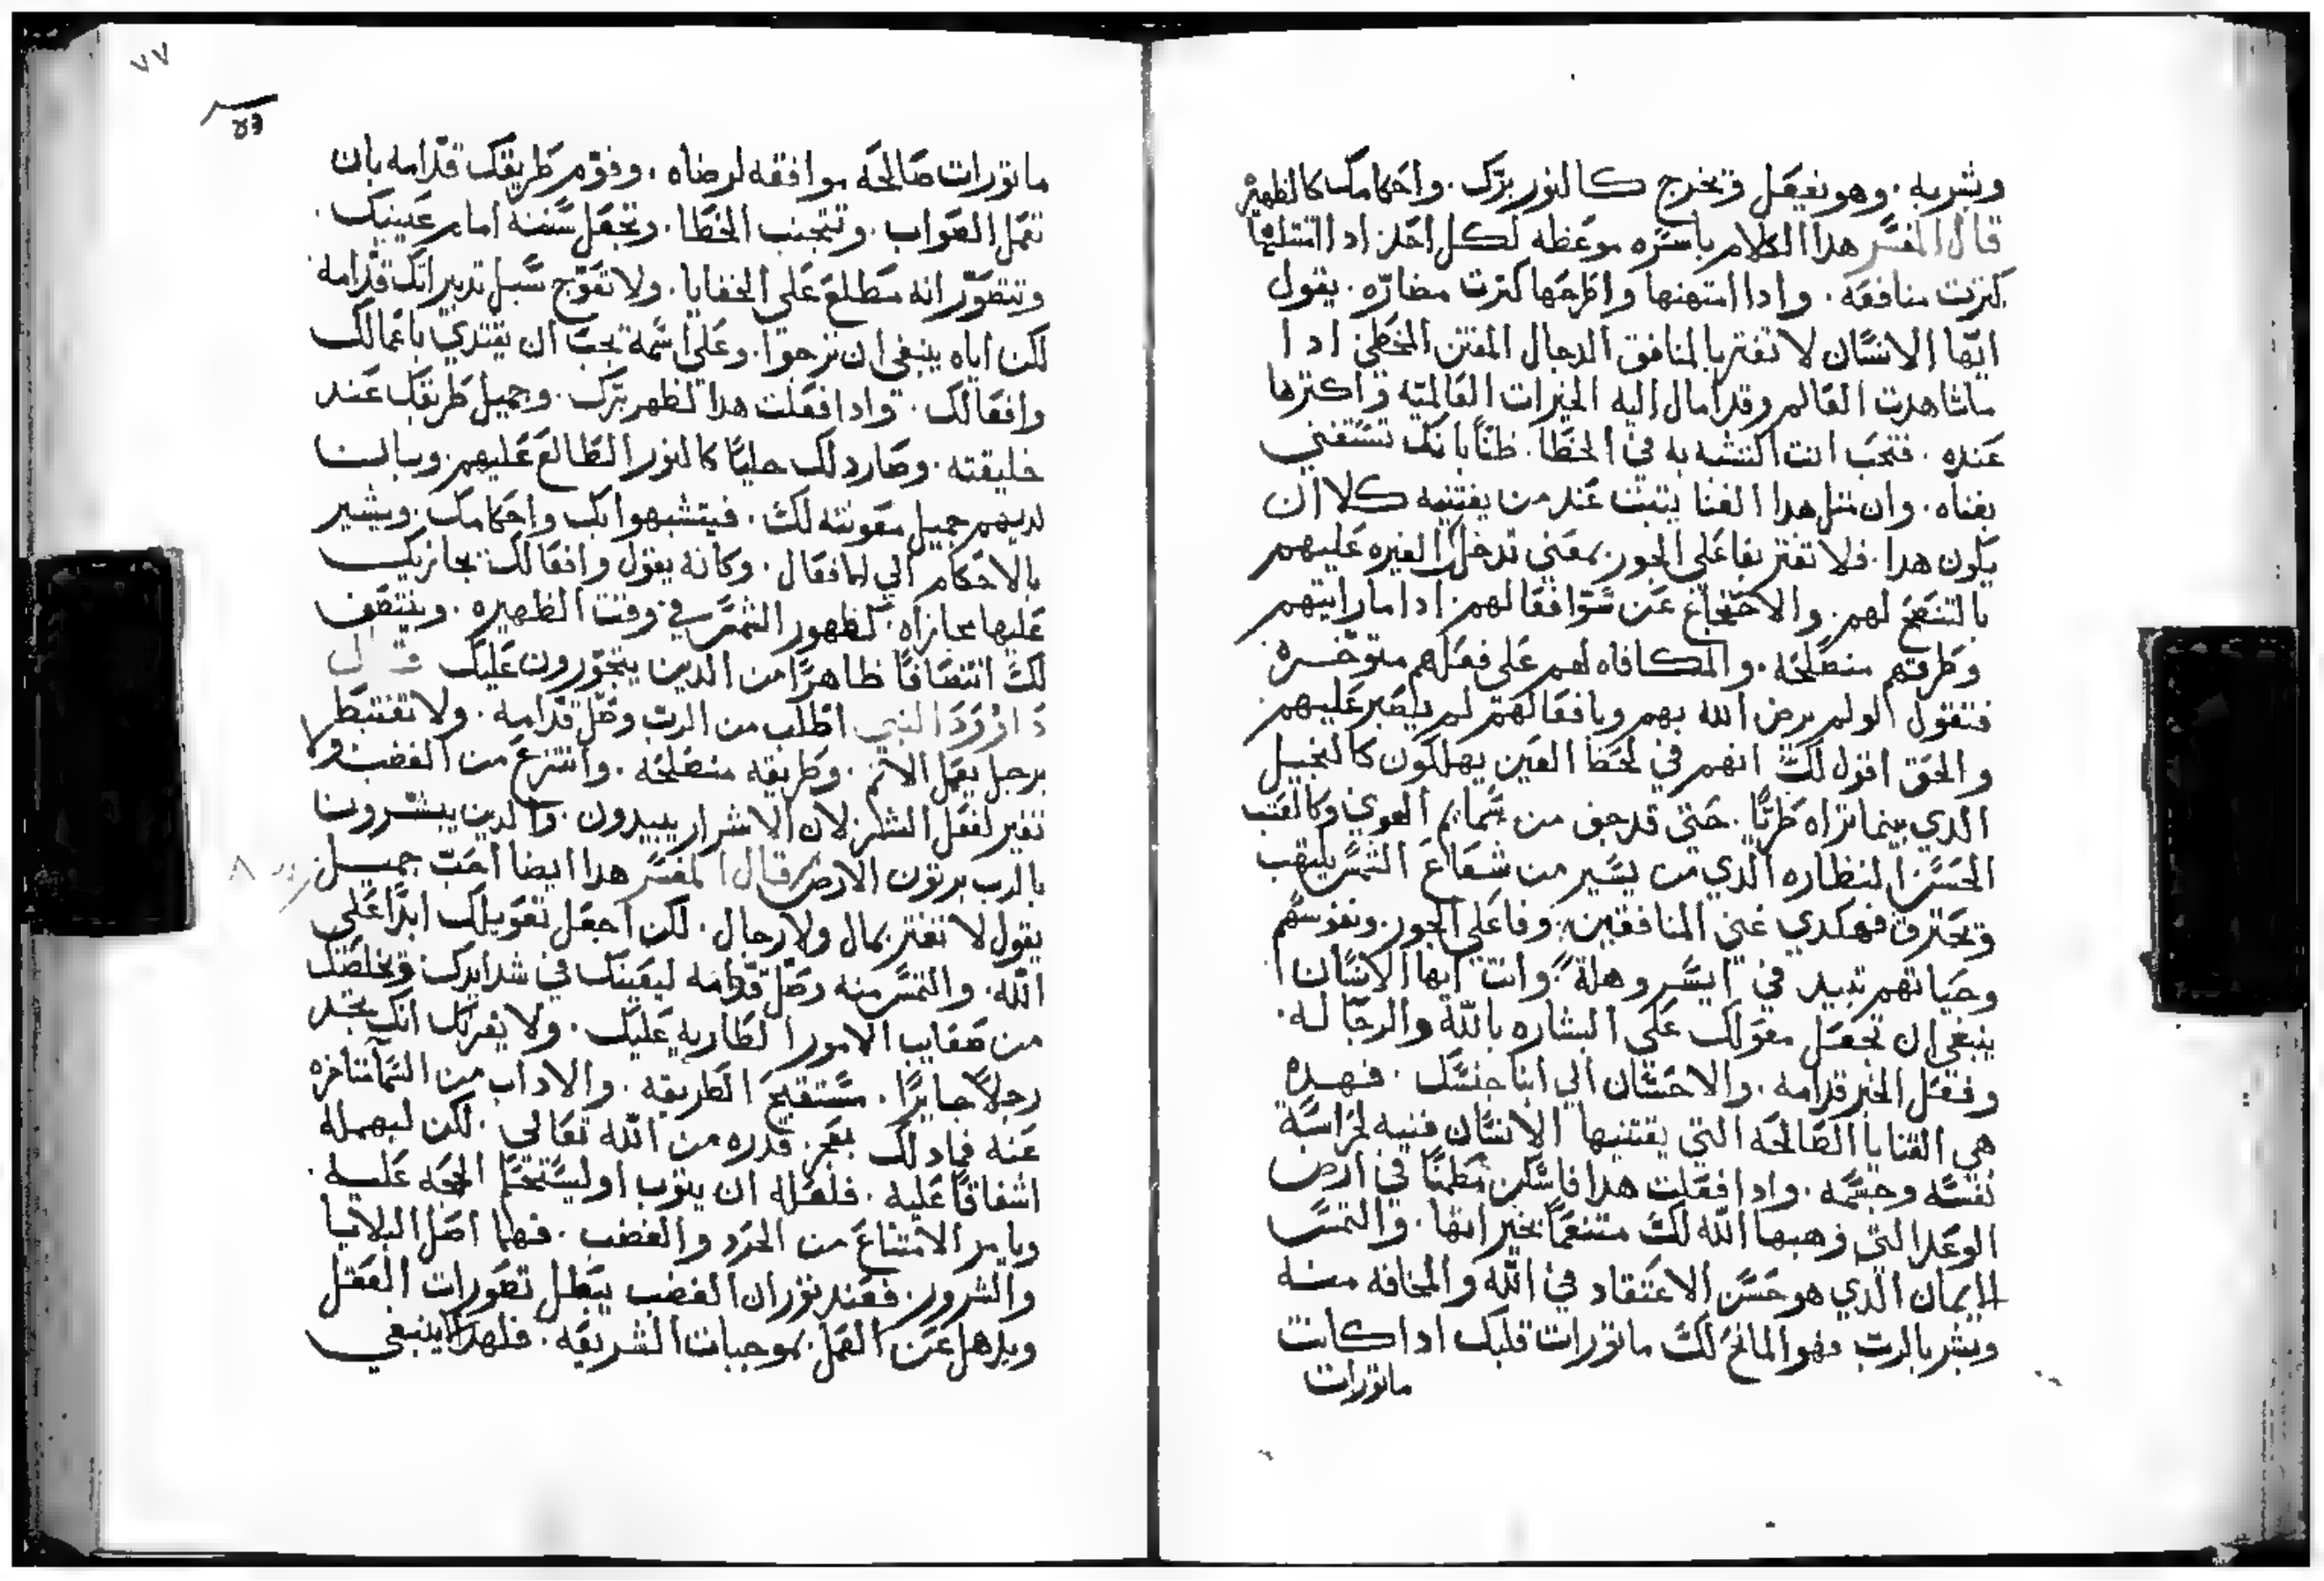 وبشر به . وهو يفعل ويخرج كالنور برك . واحكامك كالظهيره
قال المفسر هدا الكلام باسره موعظه لكل احد اد امتثلها
كثرت منافعه . وادا امتهنها واطرحها كثرت مضاره . يقول
ايها الانسان لا تغتر بالمنافق الدجال المفتن المخطئ ادا
ما شاهدت العالم وقد امال اليه الخيرات العالميه واكترها
عنده . فتحب انت التشبه به في الخطا . ظناً بانك تستغني
بغناه . وان متل هدا الغنا يتبت عند من يقتنيه كلا ان
يكون هدا . فلا تغتر بفاعلي الجور بمعني تدخل الغيره عليهم
بالتنصح لهم . والاحتجاج عن سو افعالهم ادا ما رايتهم
وطرقهم منصلحه . والمكافاه لهم علي فعلهم متوخره
فتقول لو لم يرض الله بهم وبافعالهم لم يصبر عليهم
والحق اقول لك انهم في لحظ العين يهلكون كالنجيل
الدي بينما تراه طريًا . حتي قد جف من سمايم القوي وكالعشب
الحسن النظاره الدي من يسير من شعاع الشمس يلتهب
ويحترق فهكدي غني المنافقين . وفاعلي الجور . ونفوسهم
وحياتهم تبيد في ايسر وهلة . وانت ايها الانسان
ينبغي ان تجعل معولك علي البشاره بالله والرجا له .
وفعل الخير قدامه . والاحسان الي ابنا جنسك . فهده
هي القنايا الصالحه التي يقتنيها الانسان فنيه لحراسة
نفسه وجسمه . وادا فعلت هدا فاسكن مطمنًا في ارض
الوعد التي وهبها الله لك متنعمًا بخيراتها . والتمس
الايمان الدي هو حسن الاعتقاد في الله والمخافه منه
وبشر بالرب فهو المانح لك ماتورات قلبك ادا كانت
ماتورات
٧٧
ماتورات صالحه موافقه لرضاه . وقوم طريقك قدامه بان
تعمل الصواب . وتتجنب الخطا . وتجعل سننه امام عينيك .
وتتصور انه مطلع علي الخفايا . ولا تعوج سبل تدبيراتك قدامه
لكن اياه ينبغي ان ترجوا . وعلي اسمه يجب ان يقتدي باعمالك
وافعالك . وادا فعلت هدا لظهر برك . وجميل طريقك عند
خليقته . وصار دلك جليًا كالنور الطالع عليهم وبان
لديهم جميل معونته لك . فيتشبهوا بك واحكامك . ويشير
بالاحكام الي الافعال . وكانه يقول وافعالك يجازيك
عليها مجازاه كظهور الشمس في وقت الظهيره . وينتصف
لك انتصافًا ظاهرًا من الدين يتجورون عليك قال
داوود النبي اطلب من الرب وصل قدامه . ولا تغتبط
برجل يعمل الاتم . وطريقه منصلحه . وانتزع من الغضب و
تغير لفعل الشر لان الاشرار يبيدون . والدين يبشرون
بالرب يرتون الارض قال المفسر هدا ايضا احب جميل
يقول لا تغتر بمال ولا رجال . لكن اجعل تعويلك ابدًا علي
الله . والتمس منه وصل قدامه ليعينك في شدايدك ويخلصك
من صعايب الامور الطاريه عليك . ولا يغرك انك تجد
رجلاً جايرًا . مستقيم الطريقه . والاداب من السما متاخره
عنه فما دلك بعجز قدره من الله تعالي . لكن ليمهله
اشفاقًا عليه . فلعله ان يتوب او ليستحكم الحجه عليه .
ويامر الامتناع من الحرد والغضب . فهما اصل البلايا
والشرور . فعند توران الغضب يبطل تصورات العقل
ويدهل عن العمل بموجبات الشريعه . فلهدا لا ينبغي